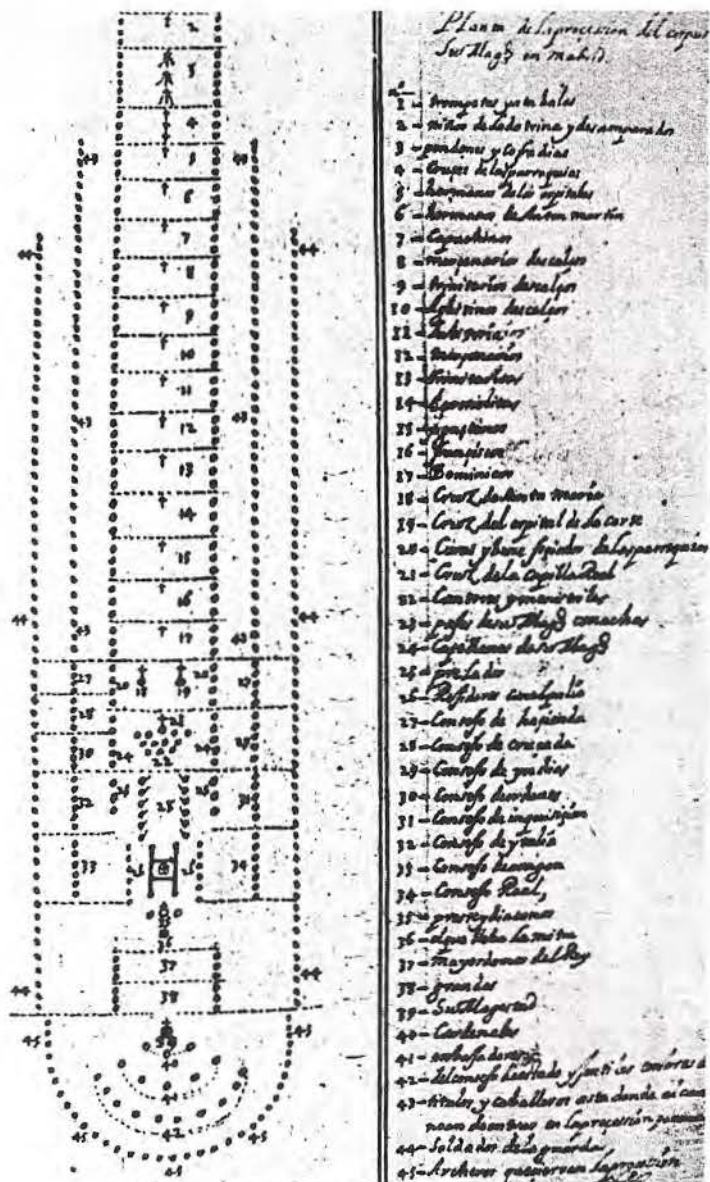 Planta de la procesion del corpus
Su Magd en madrid.
no
1 - trompetas y atabales
2 - niños de la dotrina y desamparados
3 - pendones y cofradias
4 - Cruzes de las parroquias
5 - hermanos de los ospitales
6 - hermanos de Anton martin
7 - Capuchinos
8 - merzenarios descalços
9 - trinitarios descalços
10 - Agustinos descalços
11 -
12 - merzenarios
13 - trinitarios
14 - Carmelitas
15 - Agustinos
16 - franciscos
17 - Dominicos
18 - Cruz de Santa maria
19 - Cruz del ospital de la corte
20 - Curas y beneficiados de las parroquias
21 - Cruz de la Capilla Real
22 - Cantores y ministriles
23 - pajes de su Magd con achas
24 - Capellanes de su Magd
25 - prelados
26 - Regidores con el palio
27 - Consejo de hazienda
28 - Consejo de cruzada
29 - Consejo de yndias
30 - Consejo de ordenes
31 - Consejo de inquisizion
32 - Consejo de ytalia
33 - Consejo de aragon
34 - Consejo Real,
35 - preste y diaconos
36 - el que lleba la mitra
37 - mayordomos del Rey
38 - grandes
39 - Su Magestad
40 - Cardenales
41 - embajadores
42 - del consejo de estado y
43 - titulos y caballeros
en la procesion
44 - Soldados de la guarda
45 - Archeros que cierran la procesion
2
3
4
5
6
7
8
9
10
11
12
13
14
15
16
17
43
44
45
27
20
18
19
28
30
21
24
22
32
26
25
31
33
34
36
37
38
39
40
41
42